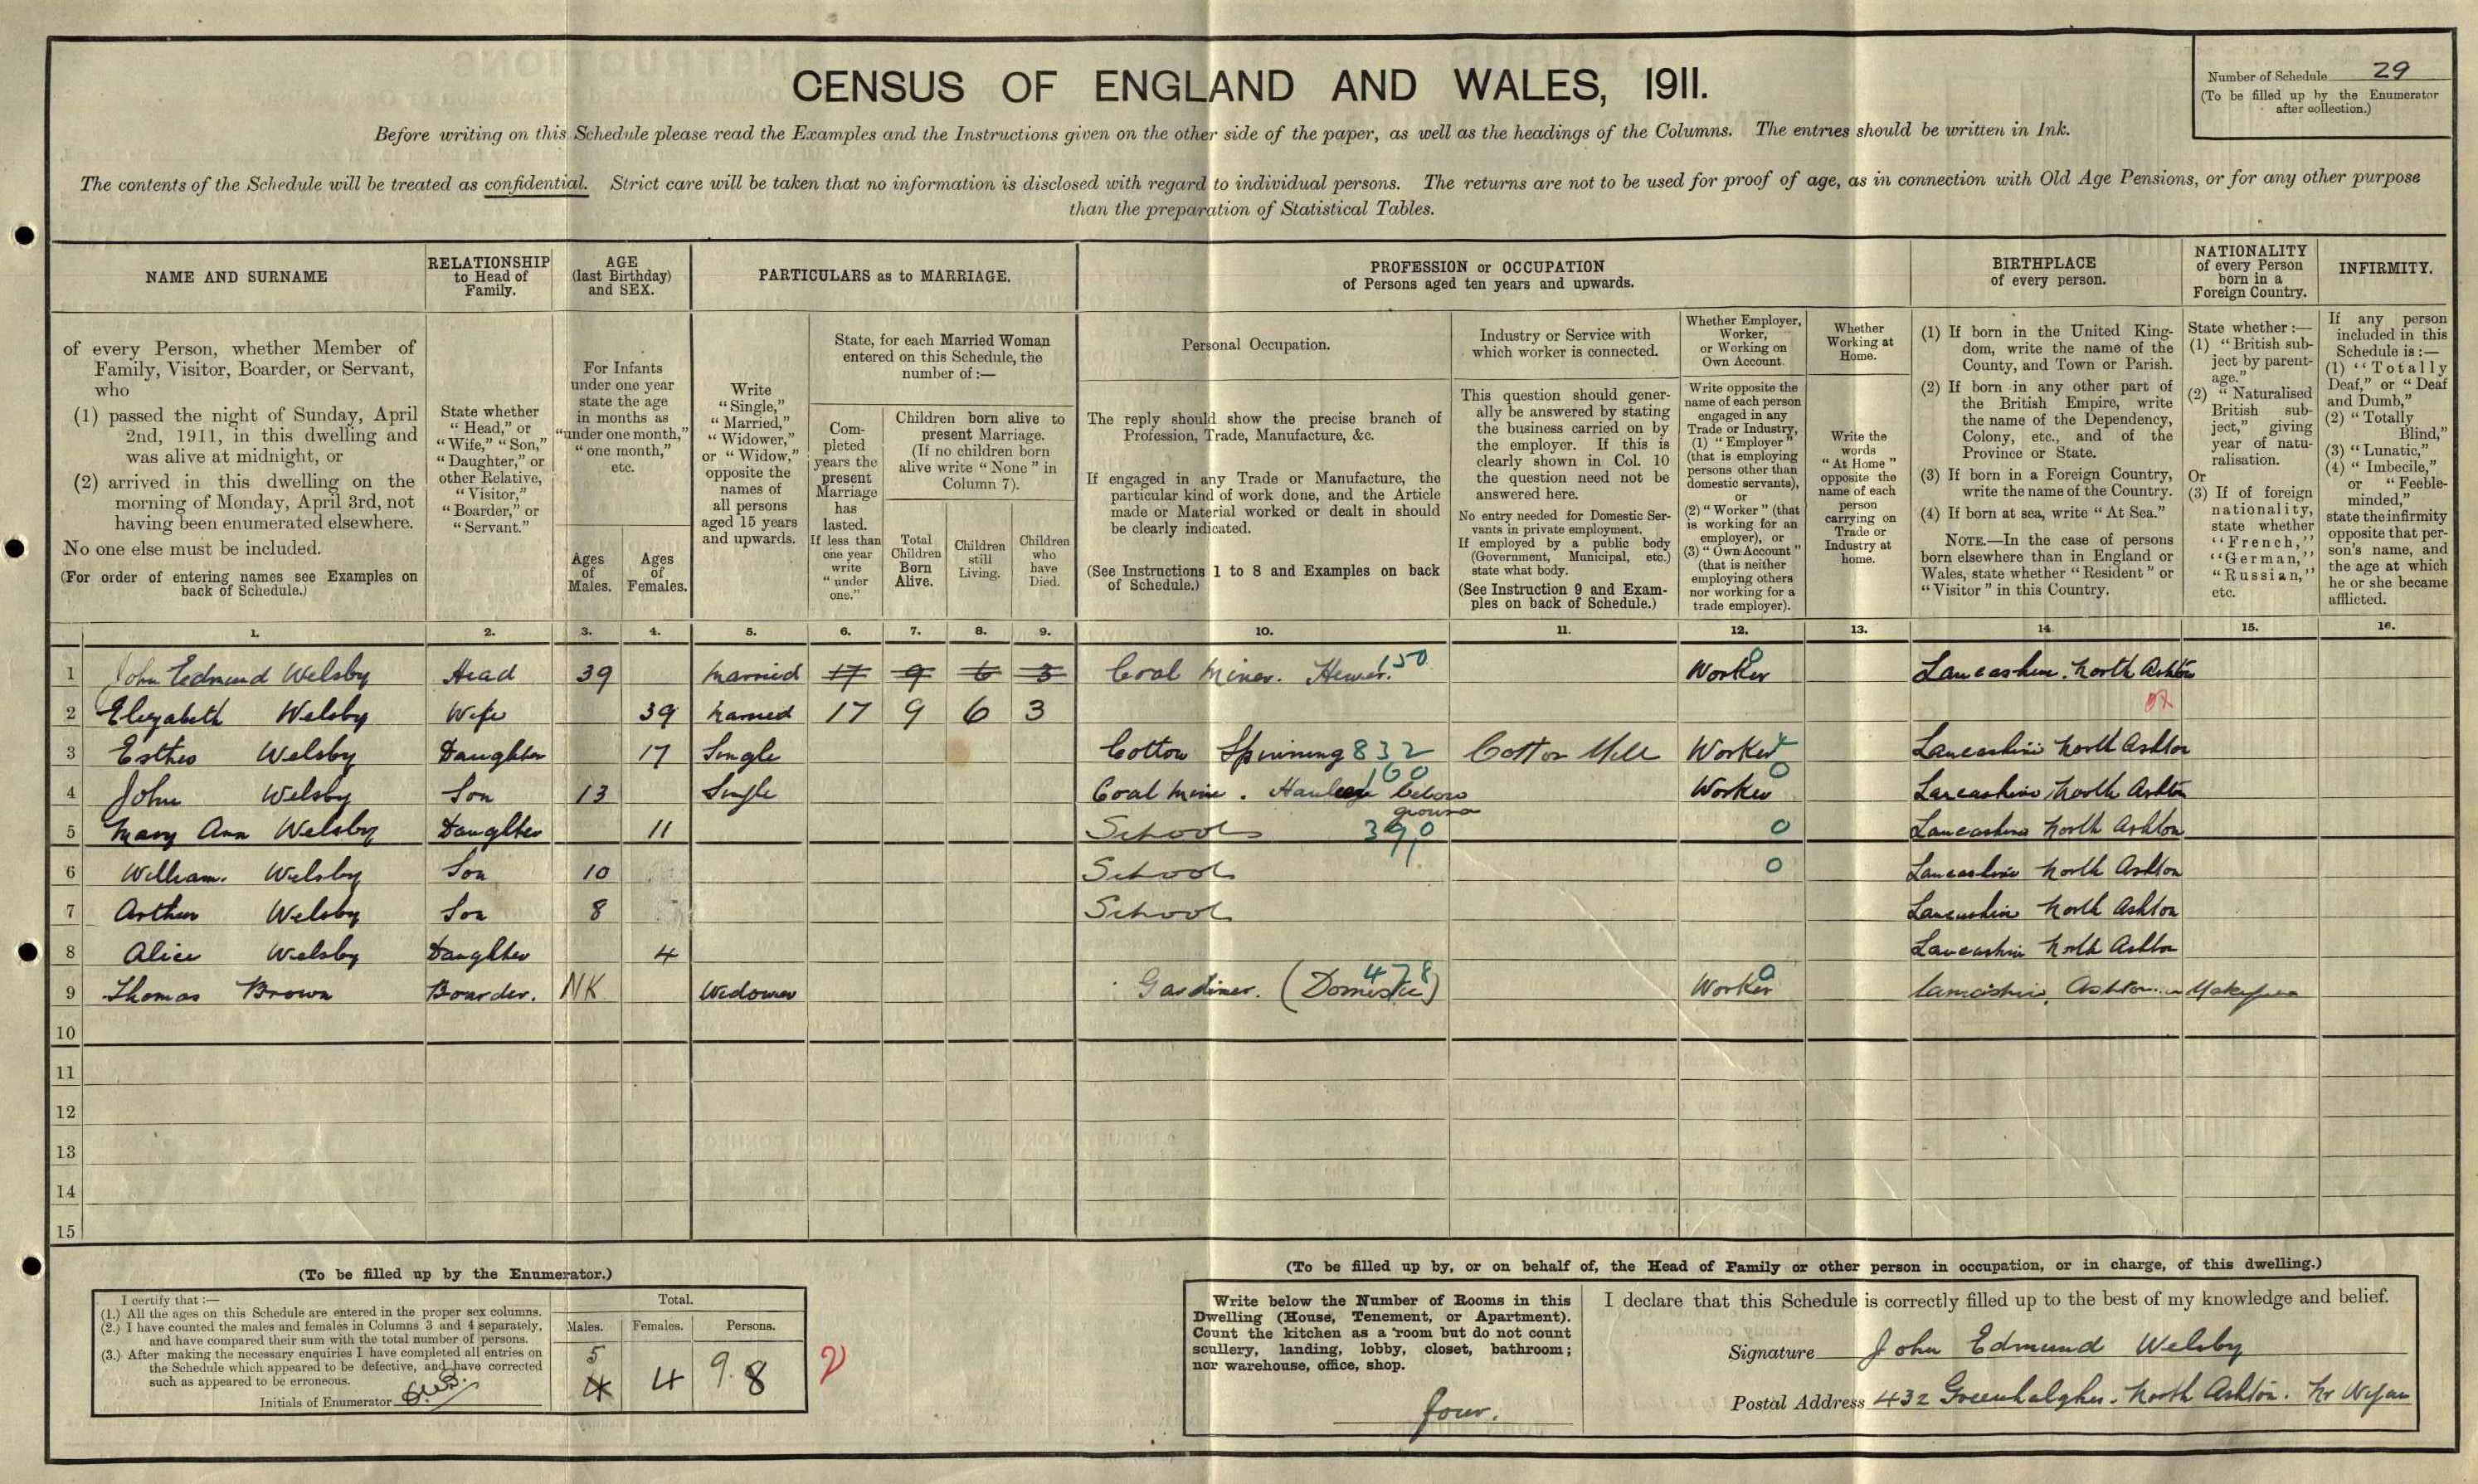 Number of Schedule 29
(To be filled up by the Enumerator
after collection.)
CENSUS OF ENGLAND AND WALES, 1911.
Before writing on this Schedule please read the Examples and the Instructions given on the other side of the paper, as well as the headings of the Columns. The entries should be written in Ink.
The contents of the Schedule will be treated as confidential. Strict care will be taken that no information is disclosed with regard to individual persons. The returns are not to be used for proof of age, as in connection with Old Age Pensions, or for any other purpose
than the preparation of Statistical Tables.
NAME AND SURNAME
of every Person, whether Member of
Family, Visitor, Boarder, or Servant,
who
(1) passed the night of Sunday, April
2nd, 1911, in this dwelling and
was alive at midnight, or
(2) arrived in this dwelling on the
morning of Monday, April 3rd, not
having been enumerated elsewhere.
No one else must be included.
(For order of entering names see Examples on
back of Schedule.)
RELATIONSHIP
to Head of
Family.
State whether
"Head," or
"Wife," "Son,"
"Daughter," or
other Relative,
"Visitor,"
"Boarder," or
"Servant."
AGE
(last Birthday)
and SEX.
For Infants
under one year
state the age
in months as
"under one month,"
"one month,"
etc.
Ages
of
Males.
Ages
of
Females.
PARTICULARS as to MARRIAGE.
Write
"Single,"
"Married,"
"Widower,"
or "Widow,"
opposite the
names of
all persons
aged 15 years
and upwards.
State, for each Married Woman
entered on this Schedule, the
number of :—
Com-
pleted
years the
present
Marriage
has
lasted.
If less than
one year
write
"under
one."
Children born alive to
present Marriage.
(If no children born
alive write "None" in
Column 7).
Total
Children
Born
Alive.
Children
still
Living.
Children
who
have
Died.
PROFESSION or OCCUPATION
of Persons aged ten years and upwards.
Personal Occupation.
The reply should show the precise branch of
Profession, Trade, Manufacture, &c.
If engaged in any Trade or Manufacture, the
particular kind of work done, and the Article
made or Material worked or dealt in should
be clearly indicated.
(See Instructions 1 to 8 and Examples on back
of Schedule.)
Industry or Service with
which worker is connected.
This question should gener-
ally be answered by stating
the business carried on by
the employer. If this is
clearly shown in Col. 10
the question need not be
answered here.
No entry needed for Domestic Ser-
vants in private employment.
If employed by a public body
(Government, Municipal, etc.)
state what body.
(See Instruction 9 and Exam-
ples on back of Schedule.)
Whether Employer,
Worker,
or Working on
Own Account.
Write opposite the
name of each person
engaged in any
Trade or Industry,
(1) "Employer"
(that is employing
persons other than
domestic servants),
or
(2) "Worker" (that
is working for an
employer), or
(3) "Own Account"
(that is neither
employing others
nor working for a
trade employer).
Whether
Working at
Home.
Write the
words
"At Home"
opposite the
name of each
person
carrying on
Trade or
Industry at
home.
BIRTHPLACE
of every person.
(1) If born in the United King-
dom, write the name of the
County, and Town or Parish.
(2) If born in any other part of
the British Empire, write
the name of the Dependency,
Colony, etc., and of the
Province or State.
(3) If born in a Foreign Country,
write the name of the Country.
(4) If born at sea, write "At Sea."
NOTE.—In the case of persons
born elsewhere than in England or
Wales, state whether "Resident" or
"Visitor" in this Country.
NATIONALITY
of every Person
born in a
Foreign Country.
State whether :—
(1) "British sub-
ject by parent-
age."
(2) "Naturalised
British sub-
ject," giving
year of natu-
ralisation.
Or
(3) If of foreign
nationality,
state whether
"French,"
"German,"
"Russian,"
etc.
INFIRMITY.
If any person
included in this
Schedule is :—
(1) "Totally
Deaf," or "Deaf
and Dumb,"
(2) "Totally
Blind,"
(3) "Lunatic,"
(4) "Imbecile,"
or "Feeble-
minded,"
state the infirmity
opposite that per-
son's name, and
the age at which
he or she became
afflicted.
1. 2. 3. 4. 5. 6. 7. 8. 9. 10. 11. 12. 13. 14. 15. 16.
1 John Edmund Welsby Head 39 Married 17 9 6 3 Coal Miner. Hewer. 150 Worker 0 Lancashire. North Ashton
2 Elizabeth Welsby Wife 39 Married 17 9 6 3
3 Esther Welsby Daughter 17 Single Cotton Spinning 832 Cotton Mill Worker Lancashire North Ashton
4 John Welsby Son 13 Single Coal Mine. Haulage below ground 160 Worker 0 Lancashire North Ashton
5 Mary Ann Welsby Daughter 11 School 390 0 Lancashire North Ashton
6 William Welsby Son 10 School 0 Lancashire North Ashton
7 Arthur Welsby Son 8 School Lancashire North Ashton
8 Alice Welsby Daughter 4 Lancashire North Ashton
9 Thomas Brown Boarder. NK Widower Gardiner. (Domestic) 478 Worker 0 Lancashire, Ashton in Makerfield
10
11
12
13
14
15
(To be filled up by the Enumerator.)
I certify that :—
(1.) All the ages on this Schedule are entered in the proper sex columns.
(2.) I have counted the males and females in Columns 3 and 4 separately,
and have compared their sum with the total number of persons.
(3.) After making the necessary enquiries I have completed all entries on
the Schedule which appeared to be defective, and have corrected
such as appeared to be erroneous.
Initials of Enumerator
Total.
Males. Females. Persons.
5
4 4 9. 8
(To be filled up by, or on behalf of, the Head of Family or other person in occupation, or in charge, of this dwelling.)
Write below the Number of Rooms in this
Dwelling (House, Tenement, or Apartment).
Count the kitchen as a room but do not count
scullery, landing, lobby, closet, bathroom;
nor warehouse, office, shop.
four.
I declare that this Schedule is correctly filled up to the best of my knowledge and belief.
Signature John Edmund Welsby
Postal Address 432 Greenhalghs. North Ashton. Nr Wigan